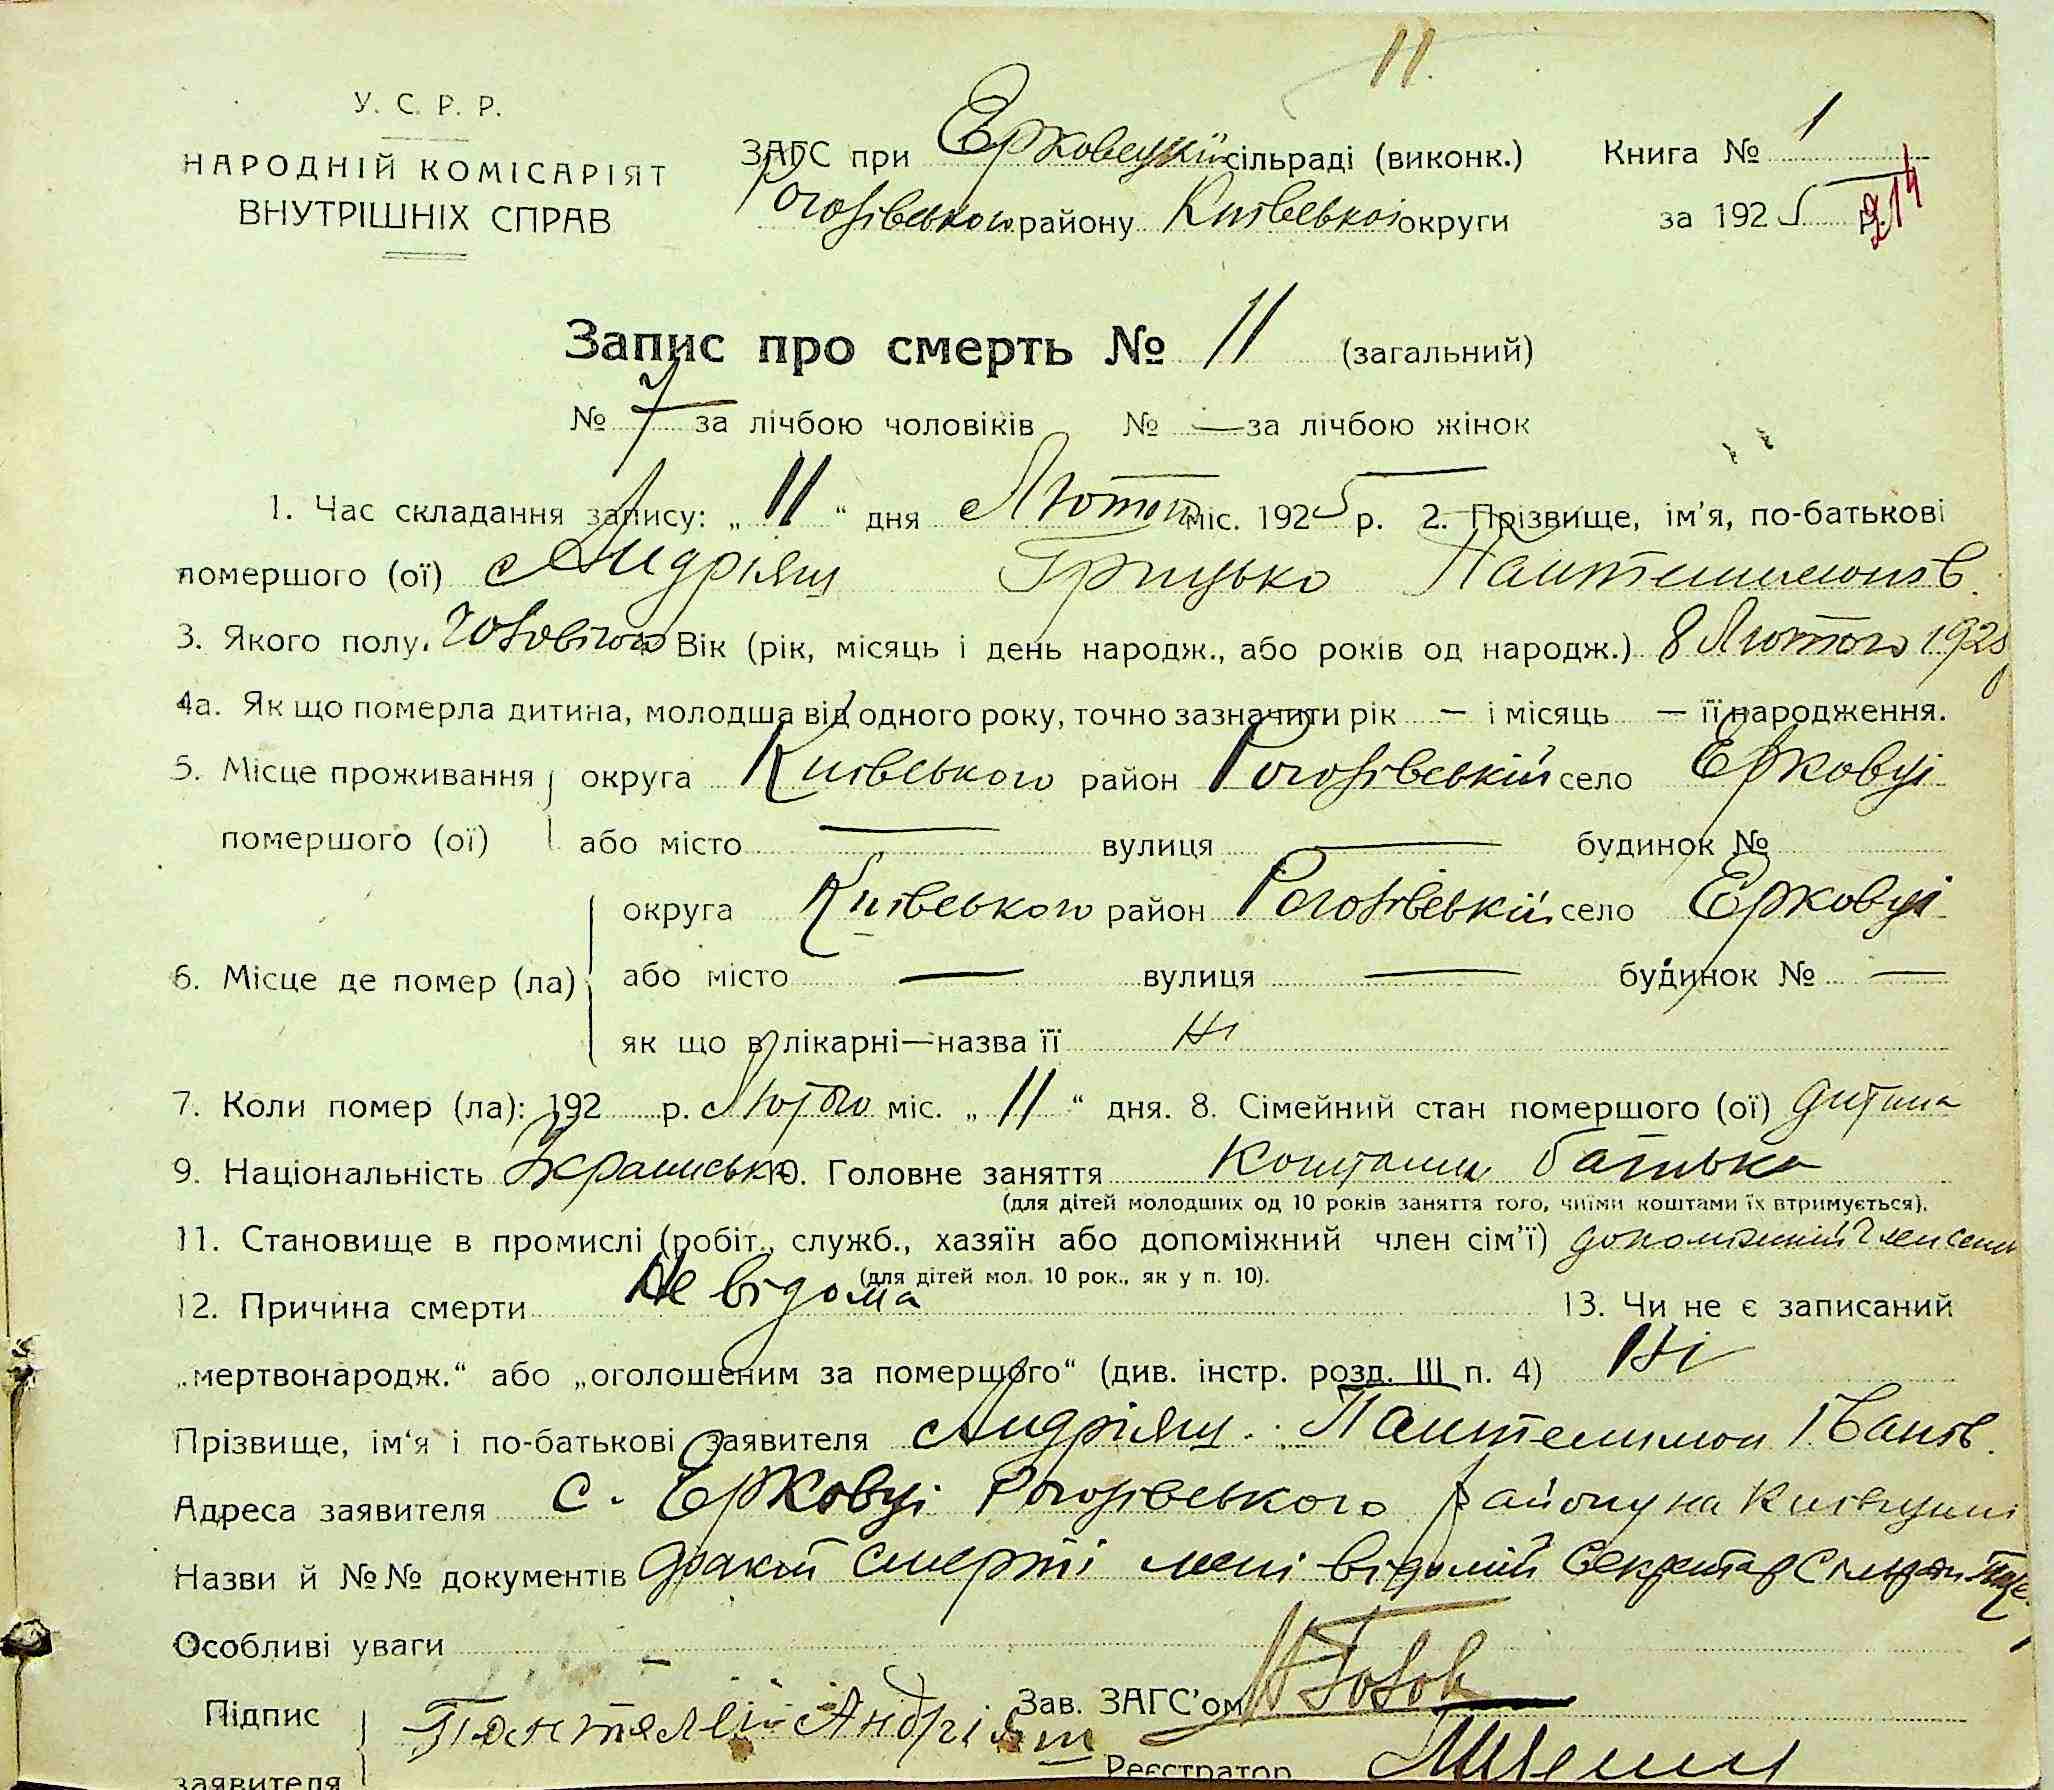 11.
У. С. Р. Р.
НАРОДНІЙ КОМІСАРІЯТ
ВНУТРІШНІХ СПРАВ
ЗАГС при Ерковецкій сільраді (виконк.)
Рогозівського району Київської округи
Книга № 1
за 1925 р.
214
Запис про смерть № 11 (загальний)
№ 7 за лічбою чоловіків № — за лічбою жінок
1. Час складання запису: „ 11 “ дня Лютого міс. 1925 р. 2. Прізвище, ім'я, по-батькові
помершого (ої) Андріяш Грицько Пантелимонів.
3. Якого полу. Чоловічого Вік (рік, місяць і день народж., або років од народж.) 8 Лютого 1925
4а. Як що померла дитина, молодша від одного року, точно зазначити рік — і місяць — її народження.
5. Місце проживання округа Київського район Рогозівський село Ерковці
помершого (ої) або місто — вулиця — будинок №
округа Київського район Рогозівський село Ерковці
6. Місце де помер (ла) або місто — вулиця — будинок № —
як що в лікарні—назва її Ні
7. Коли помер (ла): 192 р. Лютого міс. „ 11 “ дня. 8. Сімейний стан помершого (ої) дитина
9. Національність Українська 10. Головне заняття Коштами батька
(для дітей молодших од 10 років заняття того, чиїми коштами їх втримується).
11. Становище в промислі (робіт., служб., хазяїн або допоміжний член сім'ї) допоміжний член семьї
(для дітей мол. 10 рок., як у п. 10).
12. Причина смерти Не відома 13. Чи не є записаний
„мертвонародж.“ або „оголошеним за помершого“ (див. інстр. розд. III п. 4) Ні
Прізвище, ім'я і по-батькові заявителя Андріяш Пантелимон Іванів.
Адреса заявителя с. Ерковці Рогозівського району на Київщині
Назви й №№ документів факт смерті мені відомий Секретар Сільради
Особливі уваги —
Підпис Пантелей Андріяш Зав. ЗАГС'ом
заявителя Реєстратор